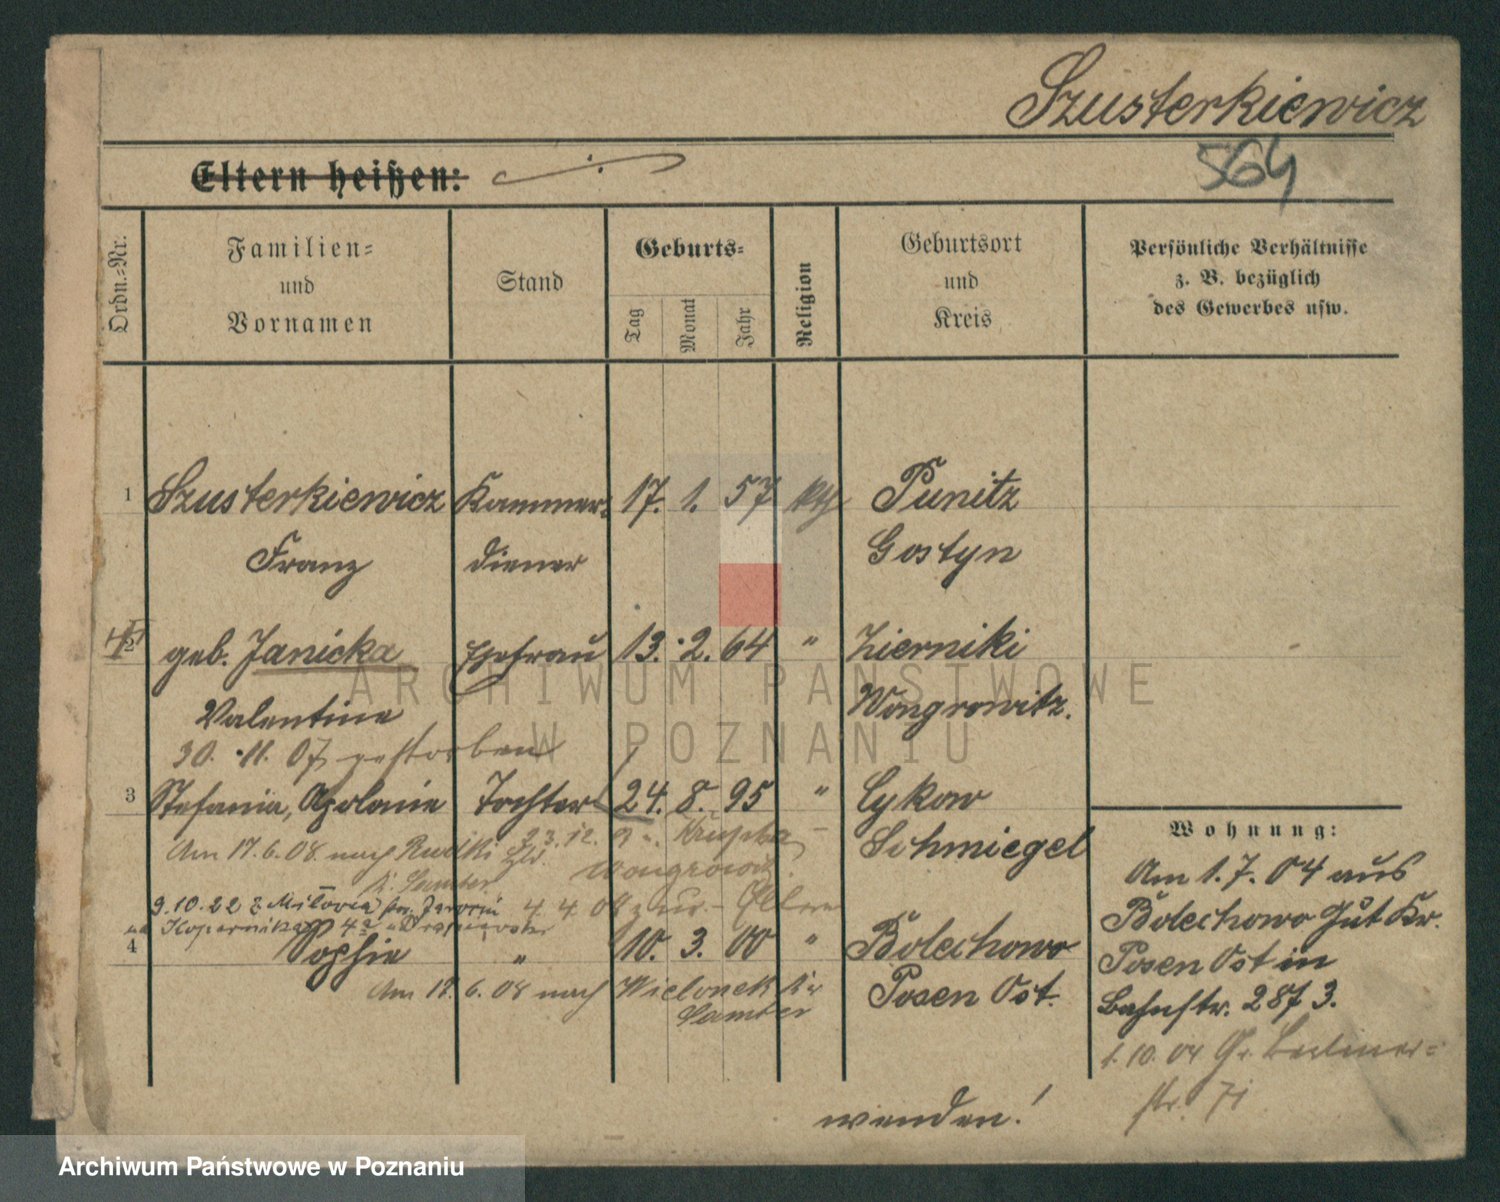 Szusterkiewicz
564
Eltern heißen:
Ordn.-Nr.
Familien-
und
Vornamen
Stand
Geburts-
Tag
Monat
Jahr
Religion
Geburtsort
und
Kreis
Persönliche Verhältnisse
z. B. bezüglich
des Gewerbes usw.
1 Szusterkiewicz Kammer- 17. 1. 57 kth Punitz
Franz diener Gostyn
2 geb. Janicka Ehefrau 13. 2. 64 " Zierniki
Valentine Wongrowitz.
30. 11. 07 gestorben
3 Stefania, Apolonie Tochter 24. 8. 95 " Lykow
Schmiegel
Am 17.6.08 nach Rudki 23.12.
Wongrowitz
K. Samter
9.10.22 z Miloslia Jarocin 4.4.08 zur. Eltern
Kopernika 4a
4 Sophie " 10. 3. 00 " Bolechowo
Am 18.6.08 nach Wielonek Kr Posen Ost.
Samter
Wohnung:
Am 1.7.04 aus
Bolechowo Gut Kr.
Posen Ost in
Bahnstr. 287 3.
1.10.04 Gr. Berliner-
str. 71
wenden!
ARCHIWUM PAŃSTWOWE
W POZNANIU
Archiwum Państwowe w Poznaniu